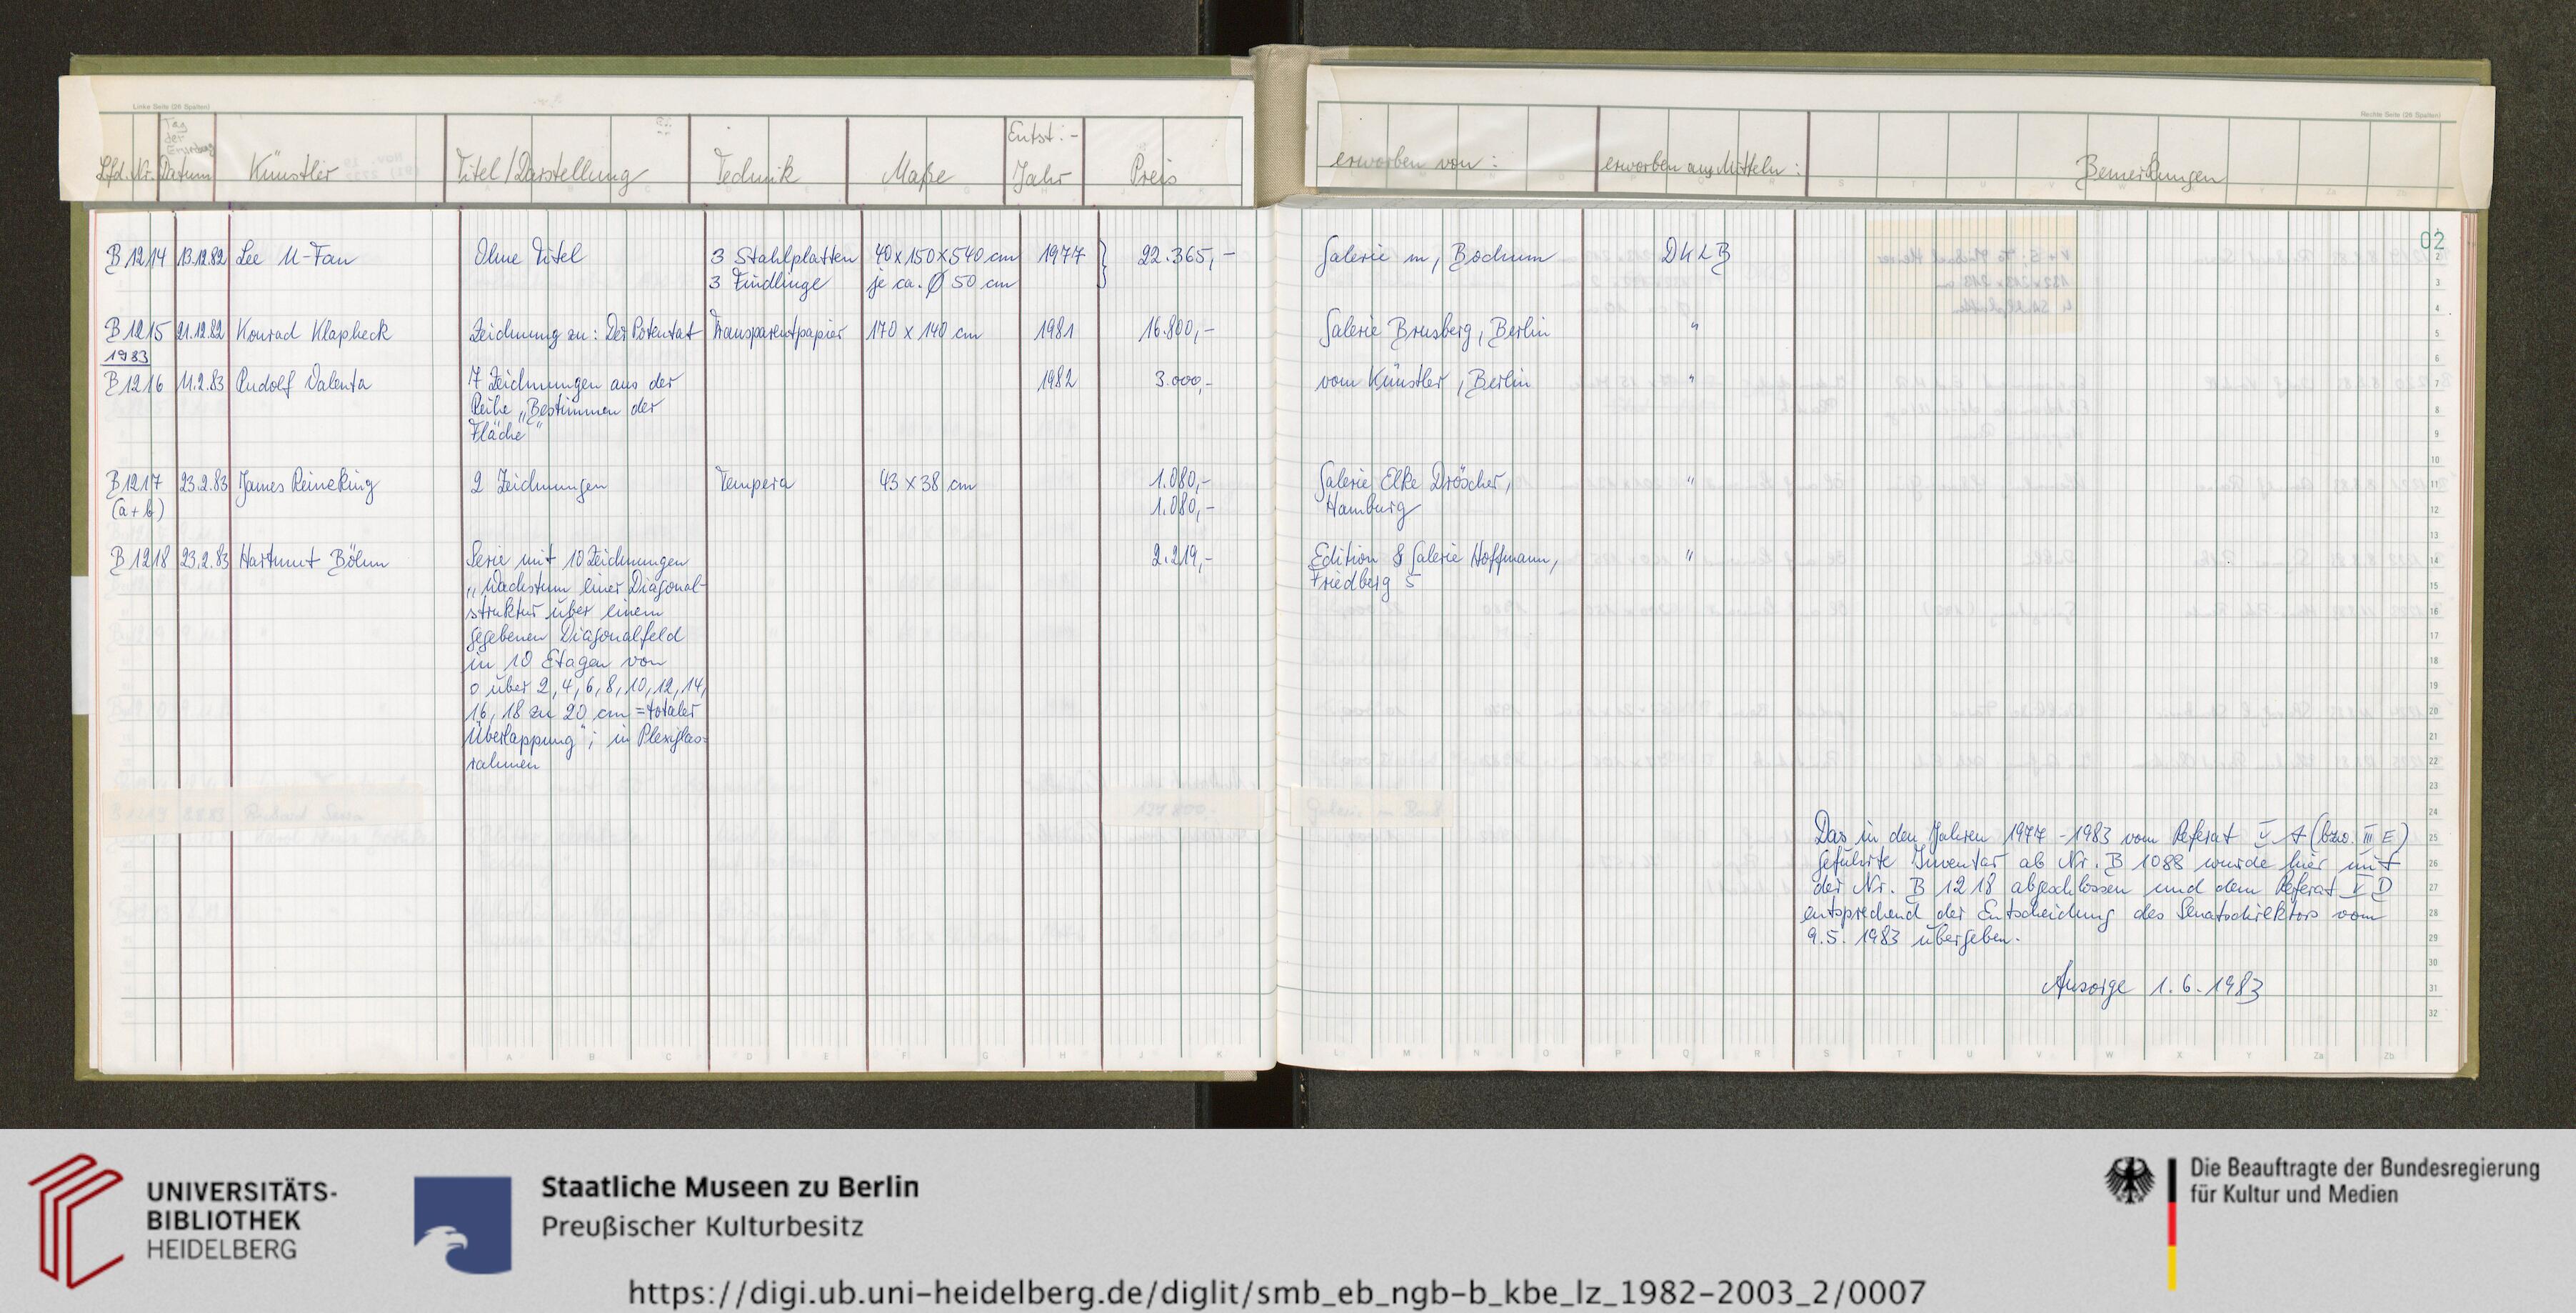 Linke Seite (26 Spalten)
Rechte Seite (26 Spalten)
Lfd. Nr.
Tag
der
Erwerbung
Datum
Künstler
Titel/Darstellung
Technik
Maße
Entst.-
Jahr
Preis
erworben von:
erworben aus Mitteln:
Bemerkungen
02
B 1214 13.12.82 Lee U-Fan Ohne Titel 3 Stahlplatten 40x150x540 cm 1977 } 22.365,- Galerie m, Bochum DKLB
3 Findlinge je ca. Ø 50 cm
B 1215 21.12.82 Konrad Klapheck Zeichnung zu: Der Potentat Transparentpapier 170 x 140 cm 1981 16.800,- Galerie Brusberg, Berlin "
1983
B 1216 11.2.83 Rudolf Valenta 7 Zeichnungen aus der 1982 3.000,- vom Künstler, Berlin "
Reihe „Bestimmen der
Fläche"
B 1217 23.2.83 James Reineking 2 Zeichnungen Tempera 43 x 38 cm 1.080,- Galerie Elke Dröscher, "
(a+b) 1.080,- Hamburg
B 1218 23.2.83 Hartmut Böhm Serie mit 10 Zeichnungen 2.219,- Edition & Galerie Hoffmann, "
„Wachstum einer Diagonal- Friedberg 5
struktur über einem
gegebenen Diagonalfeld
in 10 Etagen von
0 über 2, 4, 6, 8, 10, 12, 14,
16, 18 zu 20 cm = totaler
Überlappung"; in Plexiglas-
rahmen
B 1219 8.8.83 Richard Serra 127.800.-
Das in den Jahren 1977 - 1983 vom Referat V A (bzw. III E)
geführte Inventar ab Nr. B 1088 wurde hier mit
der Nr. B 1218 abgeschlossen und dem Referat V D
entsprechend der Entscheidung des Senatsdirektors vom
9.5. 1983 übergeben.
Ansorge 1.6.1983
1
2
3
4
5
6
7
8
9
10
11
12
13
14
15
16
17
18
19
20
21
22
23
24
25
26
27
28
29
30
31
32
A B C D E F G H J K L M N O P Q R S T U V W X Y Za Zb
UNIVERSITÄTS-
BIBLIOTHEK
HEIDELBERG
Staatliche Museen zu Berlin
Preußischer Kulturbesitz
Die Beauftragte der Bundesregierung
für Kultur und Medien
https://digi.ub.uni-heidelberg.de/diglit/smb_eb_ngb-b_kbe_lz_1982-2003_2/0007